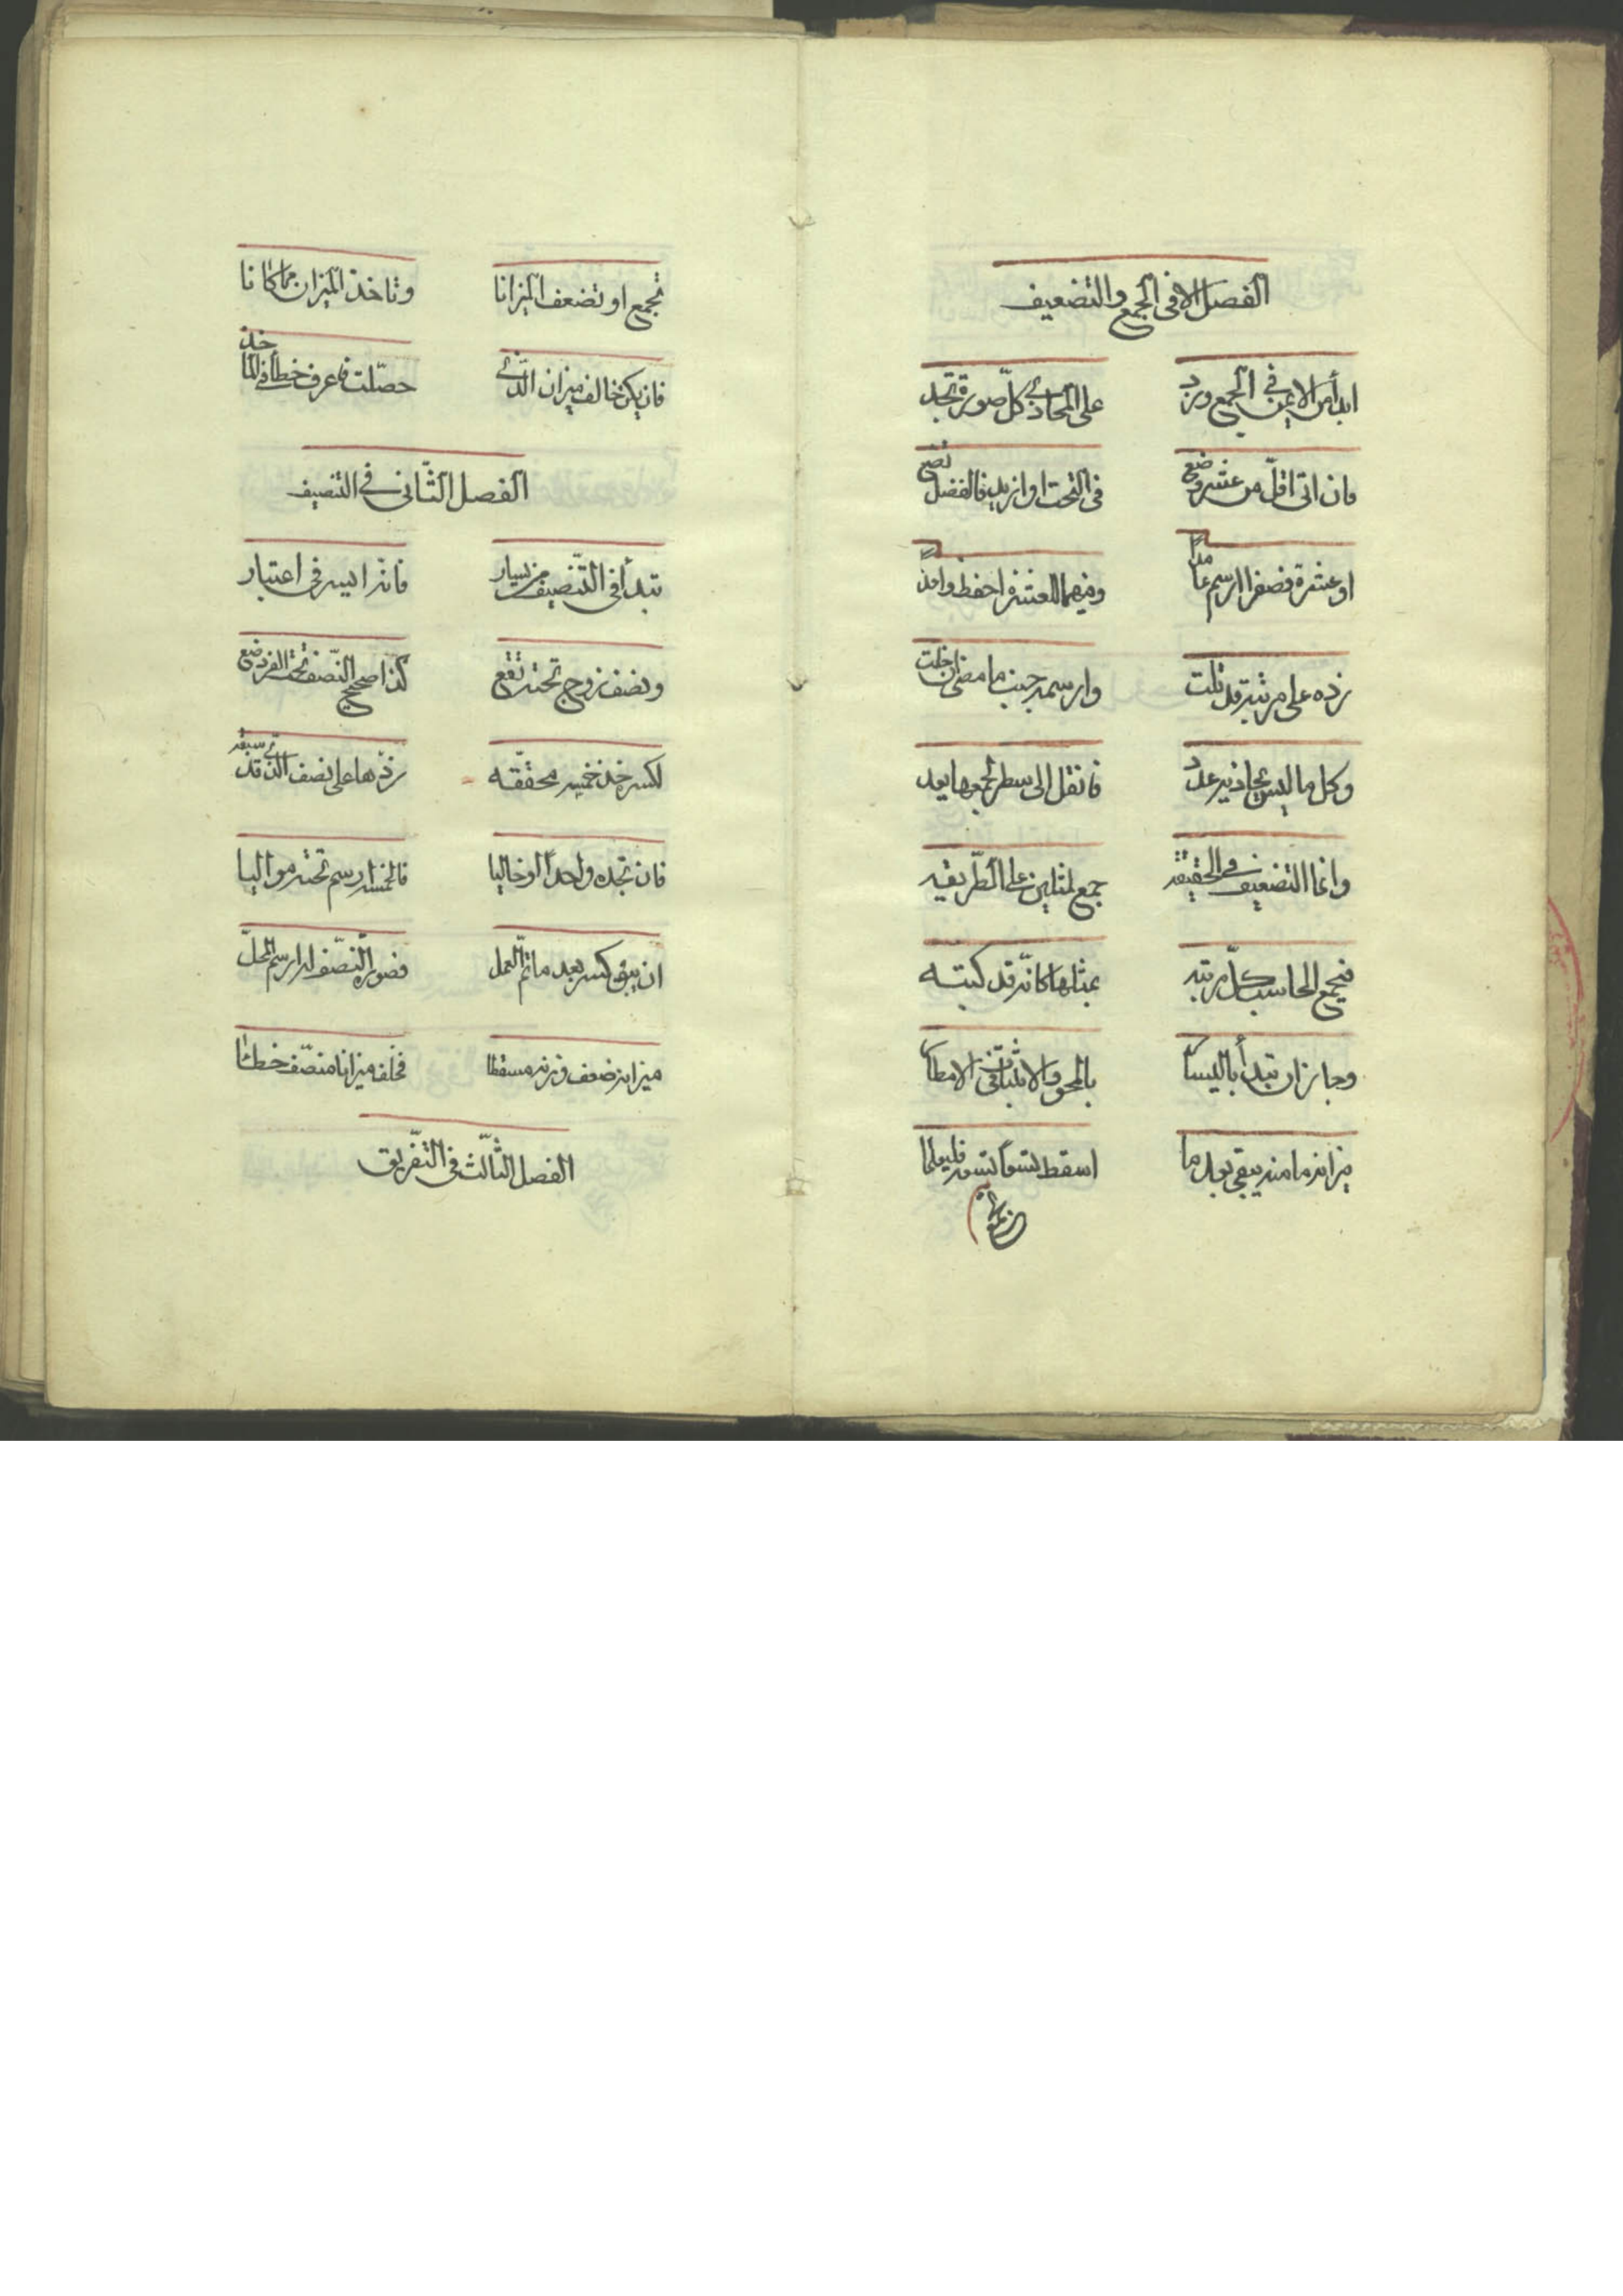 الفصل الا فى الجمع والتضعيف
ابدأ من الايمن فى الجمع وزد على المحاذى كلّ صورة تجد
فان اتى اقلّ من عشر وضع فى التحت او ازيد فالفضل تضع
او عشرة فصفرا ارسم عامدا وفيهما للعشرة احفظ واحدا
زده على مرتبة قد تلت وارسمه جنب ما مضى ان خلت
وكل ما ليس يحاذيه عدد فانقل الى سطر لجمعها يعد
وانما التضعيف فى الحقيقه جمع لمثلين على الطّريقه
فيجمع الحاسب كلّ مرتبه بمثلها كانّه قد كتبه
وجاز ان تبدأ باليسار بالمحو والاثبات فى الامطار
ميزانه ما منه يبقى بعد ما اسقط تسعاً تسعه فليعلما
تجمع او تضعف الميزانا وتاخذ الميزان مما كانا
فان يكن خالف ميزان الذى حصّلت فاعرف خطأ فى المأخذ
الفصل الثّانى فى التنصيف
تبدأ فى التّنصيف من يسار فانه ايسر فى اعتبار
ونصف زوج تحته تقع كذا صحيح النّصف تحت الفرد ضع
لكسره خذ خمسة محققه زدها على نصف الذى قد سبقه
فان تجده واحداً او خاليا فالخمسة ارسم تحته مواليا
ان يبق كسر بعد ما تمّ العمل فصورة النّصف له ارسم المحلّ
ميزانه ضعف وزنه مسقطا فخلفه ميزانا منصّف خطا
الفصل الثّالث فى التّفريق